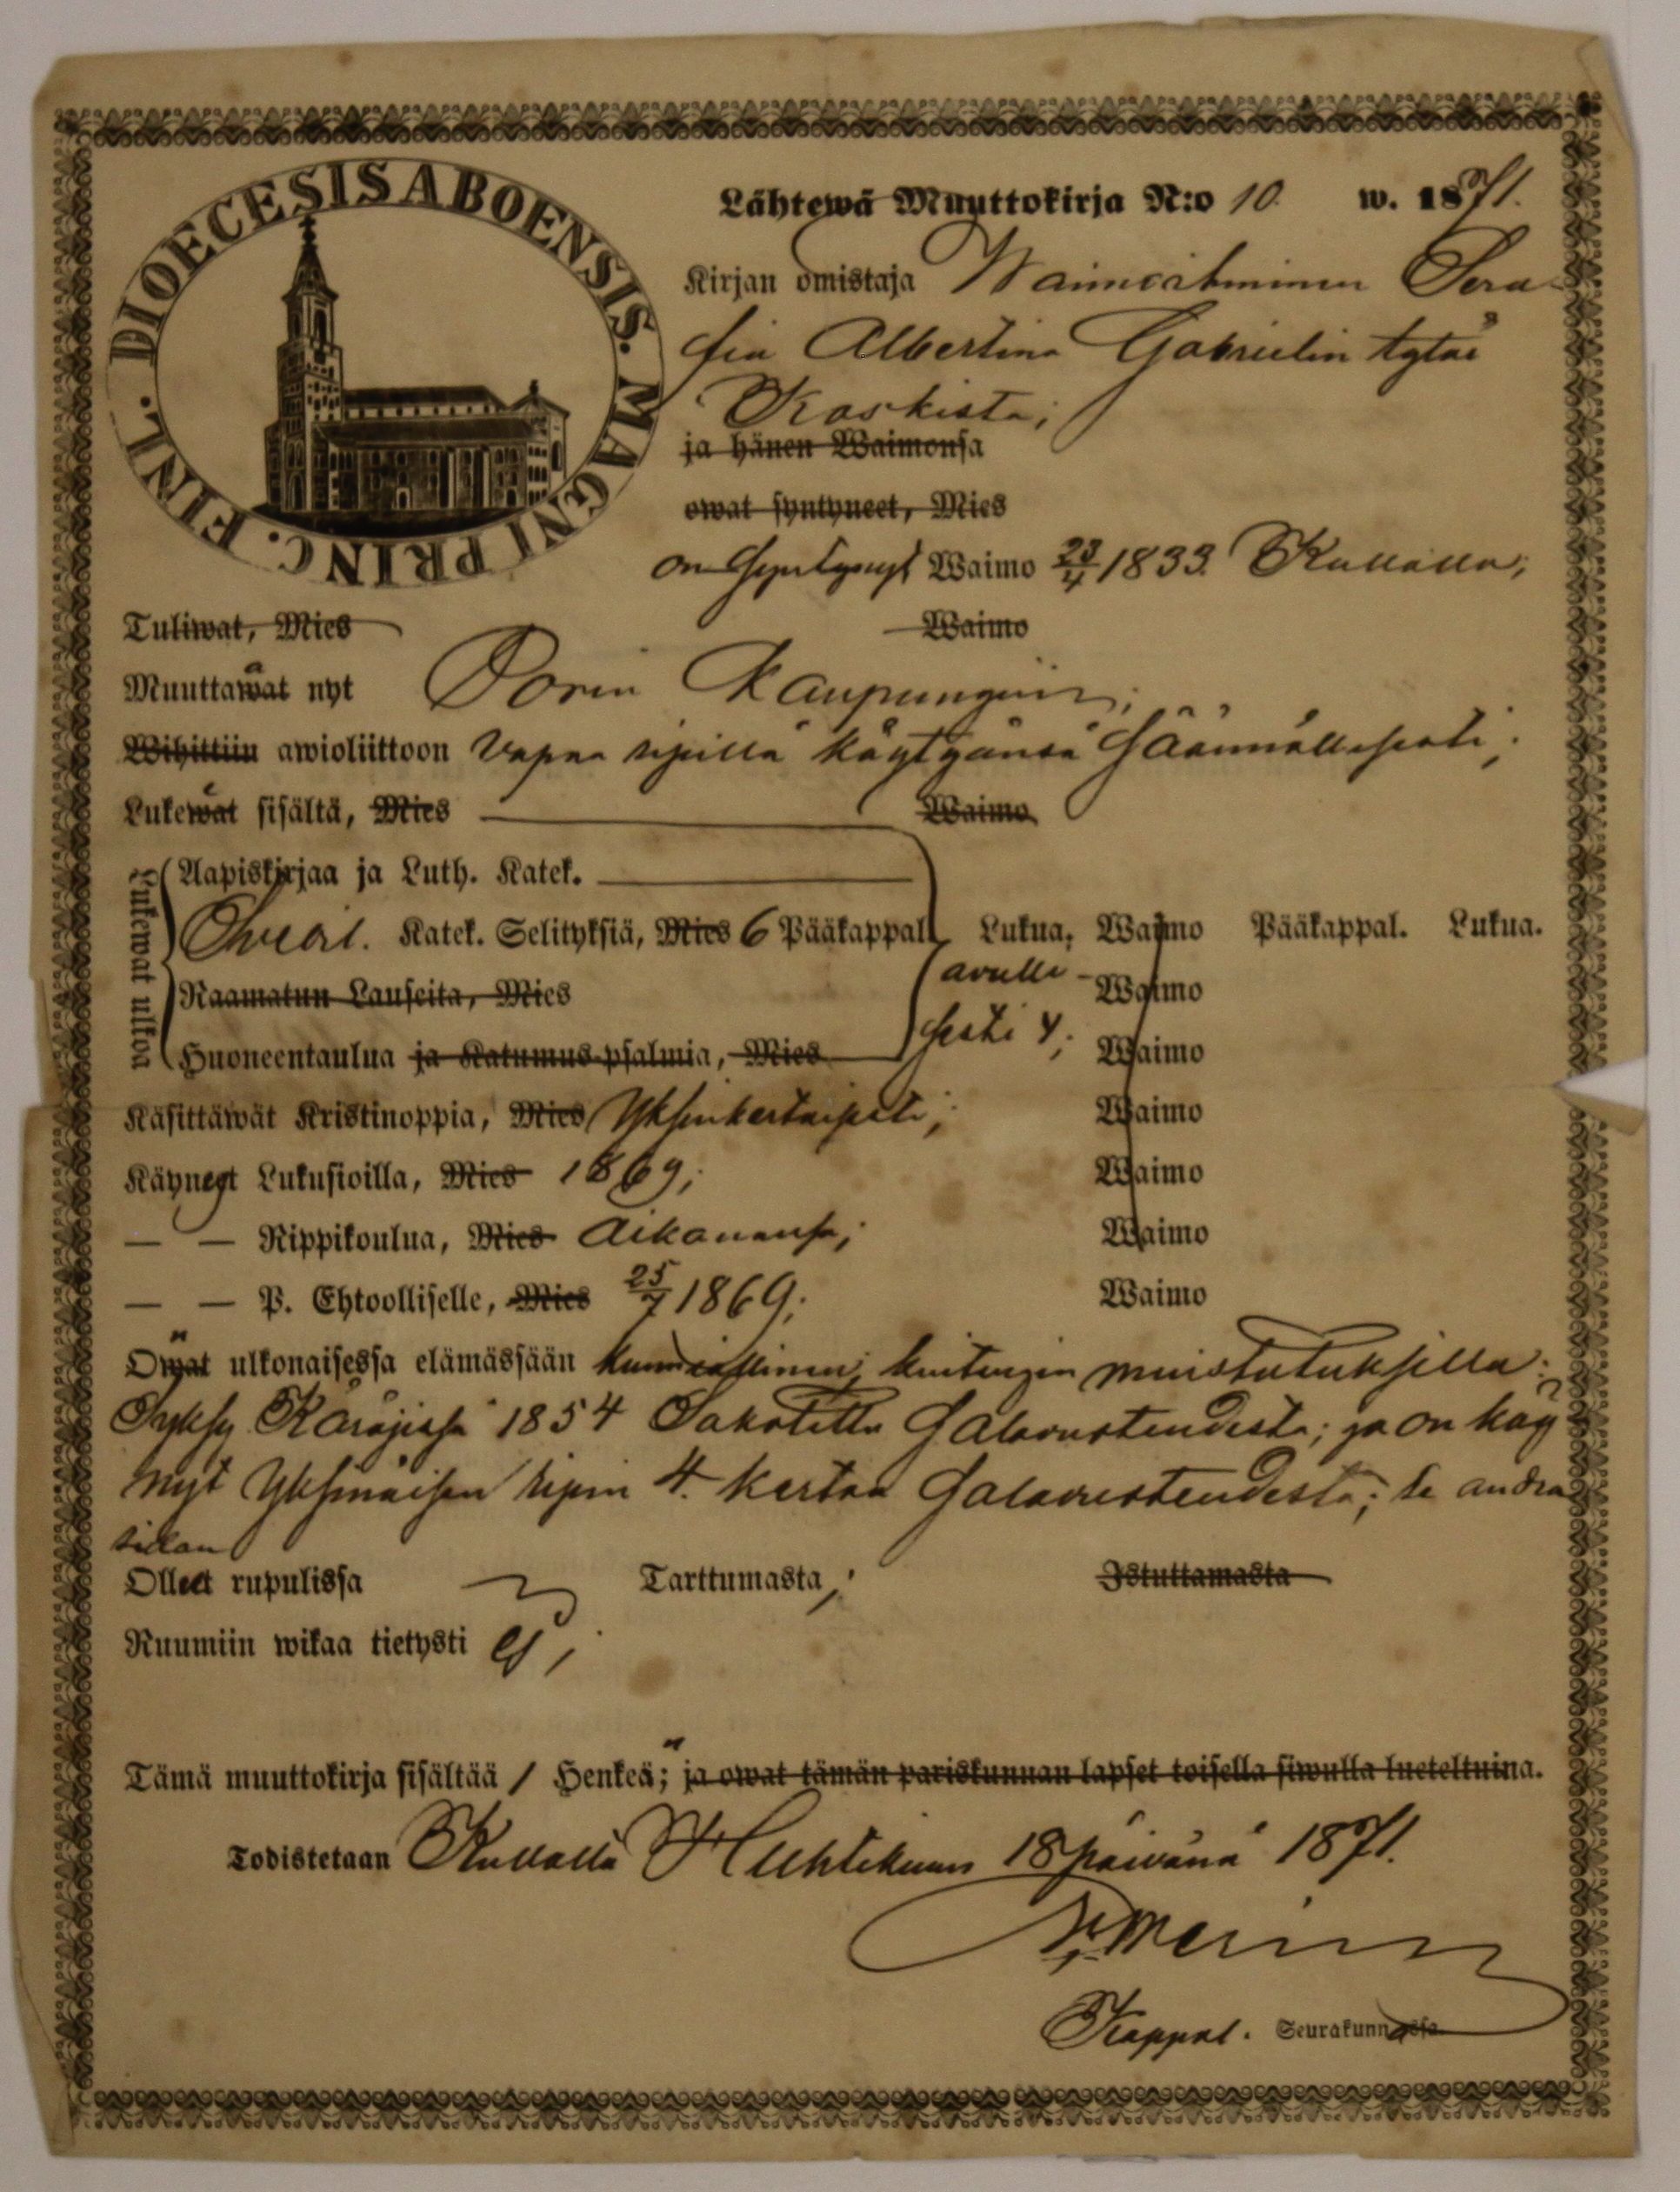 DIOECESIS ABOENSIS. MAGNI PRINC. FINL.
Lähtewä Muuttokirja N:o 10. w. 1871.
Kirjan omistaja Waimoihminen Sera-
fia Albertina Gabrielin tytär
Koskista;
ja hänen Waimonsa
owat syntyneet, Mies
on syntynyt Waimo 23/4 1833. Kullalla;
Tuliwat, Mies Waimo
Muuttawat nyt Porin Kaupungiin;
Wihittiin awioliittoon Vapaa ripillä käytyänsä säännöllisesti;
Lukewat sisältä, Mies Waimo
Lukewat ulkoa
Aapiskirjaa ja Luth. Katek.
Svebil. Katek. Selityksiä, Mies 6 Pääkappal. Lukua, Waimo Pääkappal. Lukua.
avulli-
Raamatun Lauseita, Mies Waimo
sesti 4;
Huoneentaulua ja Katumus-psalmia, Mies Waimo
Käsittäwät Kristinoppia, Mies Yksinkertaisesti; Waimo
Käyneyt Lukusioilla, Mies 1869; Waimo
— — Rippikoulua, Mies Aikanansa; Waimo
— — P. Ehtoolliselle, Mies 25/7 1869; Waimo
Owat ulkonaisessa elämässään kunniallinen, kuitengin muistutuksilla:
Syksy Käräjissä 1854 Sakotettu Salavuoteudesta; ja on käy
nyt Yksinäisen ripin 4. kertaa Salavuoteudesta;
Olleet rupulissa Tarttumasta; Istuttamasta
Ruumiin wikaa tietysti ej;
Tämä muuttokirja sisältää 1 Henkeä; ja owat tämän pariskunnan lapset toisella siwulla lueteltuina.
Todistetaan Kullalla Huhtikuun 18 päivänä 1871.
Kappal. Seurakunnassa.